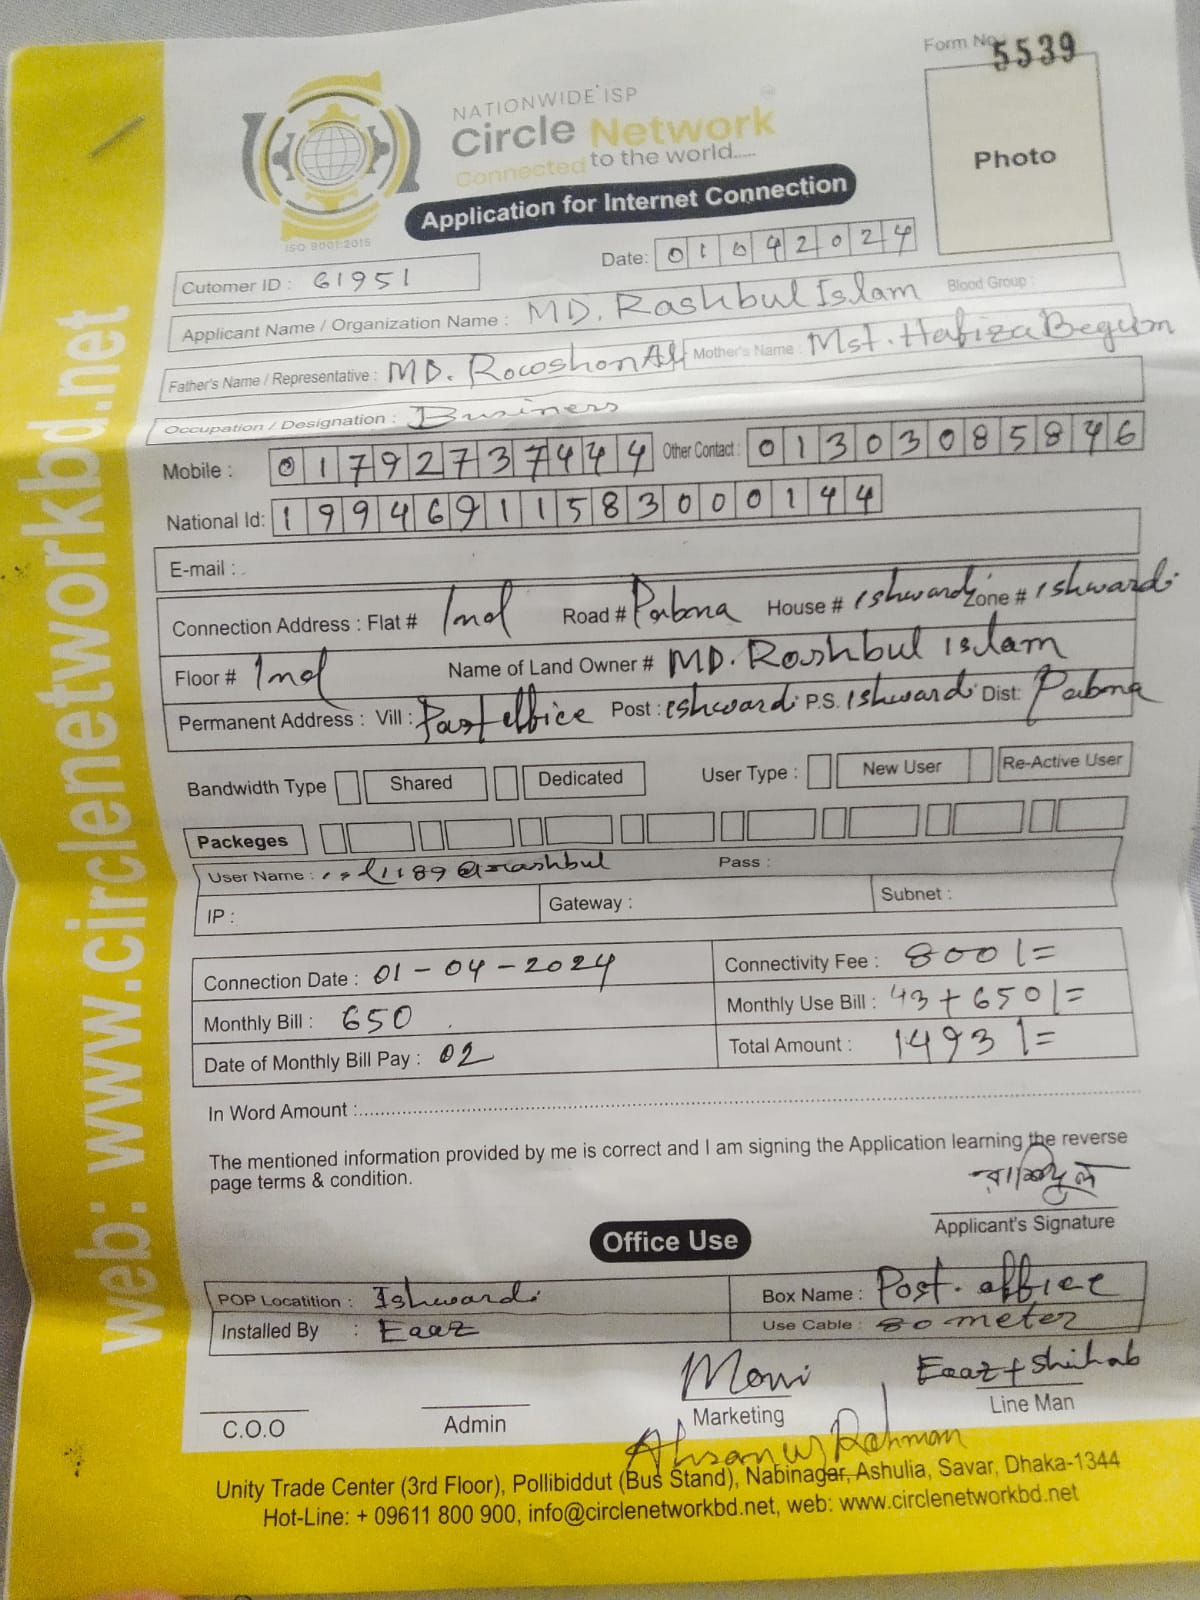 Form No. 5539
NATIONWIDE ISP
Circle Network
Connected to the world.....
Photo
Application for Internet Connection
ISO 9001:2015
Date: 01042024
Cutomer ID : 61951
Applicant Name / Organization Name : MD. Rashbul Islam Blood Group :
Father's Name / Representative : MD. Rowshon Ali Mother's Name : Mst. Hafiza Begum
Occupation / Designation : Business
Mobile : 01792737444 Other Contact : 01303085846
National Id: 19946911583000144
E-mail :
Connection Address : Flat # Ind Road # Pabna House # ishwardi Zone # ishwardi
Floor # Ind Name of Land Owner # MD. Roshbul islam
Permanent Address : Vill : Post office Post : ishwardi P.S. Ishwardi Dist: Pabna
Bandwidth Type Shared Dedicated User Type : New User Re-Active User
Packeges
User Name : 1189@rashbul Pass :
IP : Gateway : Subnet :
Connection Date : 01-04-2024 Connectivity Fee : 800/=
Monthly Bill : 650 Monthly Use Bill : 43+650/=
Date of Monthly Bill Pay : 02 Total Amount : 1493/=
In Word Amount :
The mentioned information provided by me is correct and I am signing the Application learning the reverse
page terms & condition.
রাশিদুল
Applicant's Signature
Office Use
POP Locatition : Ishwardi Box Name : Post. office
Installed By : Eaaz Use Cable : 80 meter
Moni Eaaz + Shihab
C.O.O Admin Marketing Line Man
Ahsan Ul Rahman
Unity Trade Center (3rd Floor), Pollibiddut (Bus Stand), Nabinagar, Ashulia, Savar, Dhaka-1344
Hot-Line: + 09611 800 900, info@circlenetworkbd.net, web: www.circlenetworkbd.net
web: www.circlenetworkbd.net